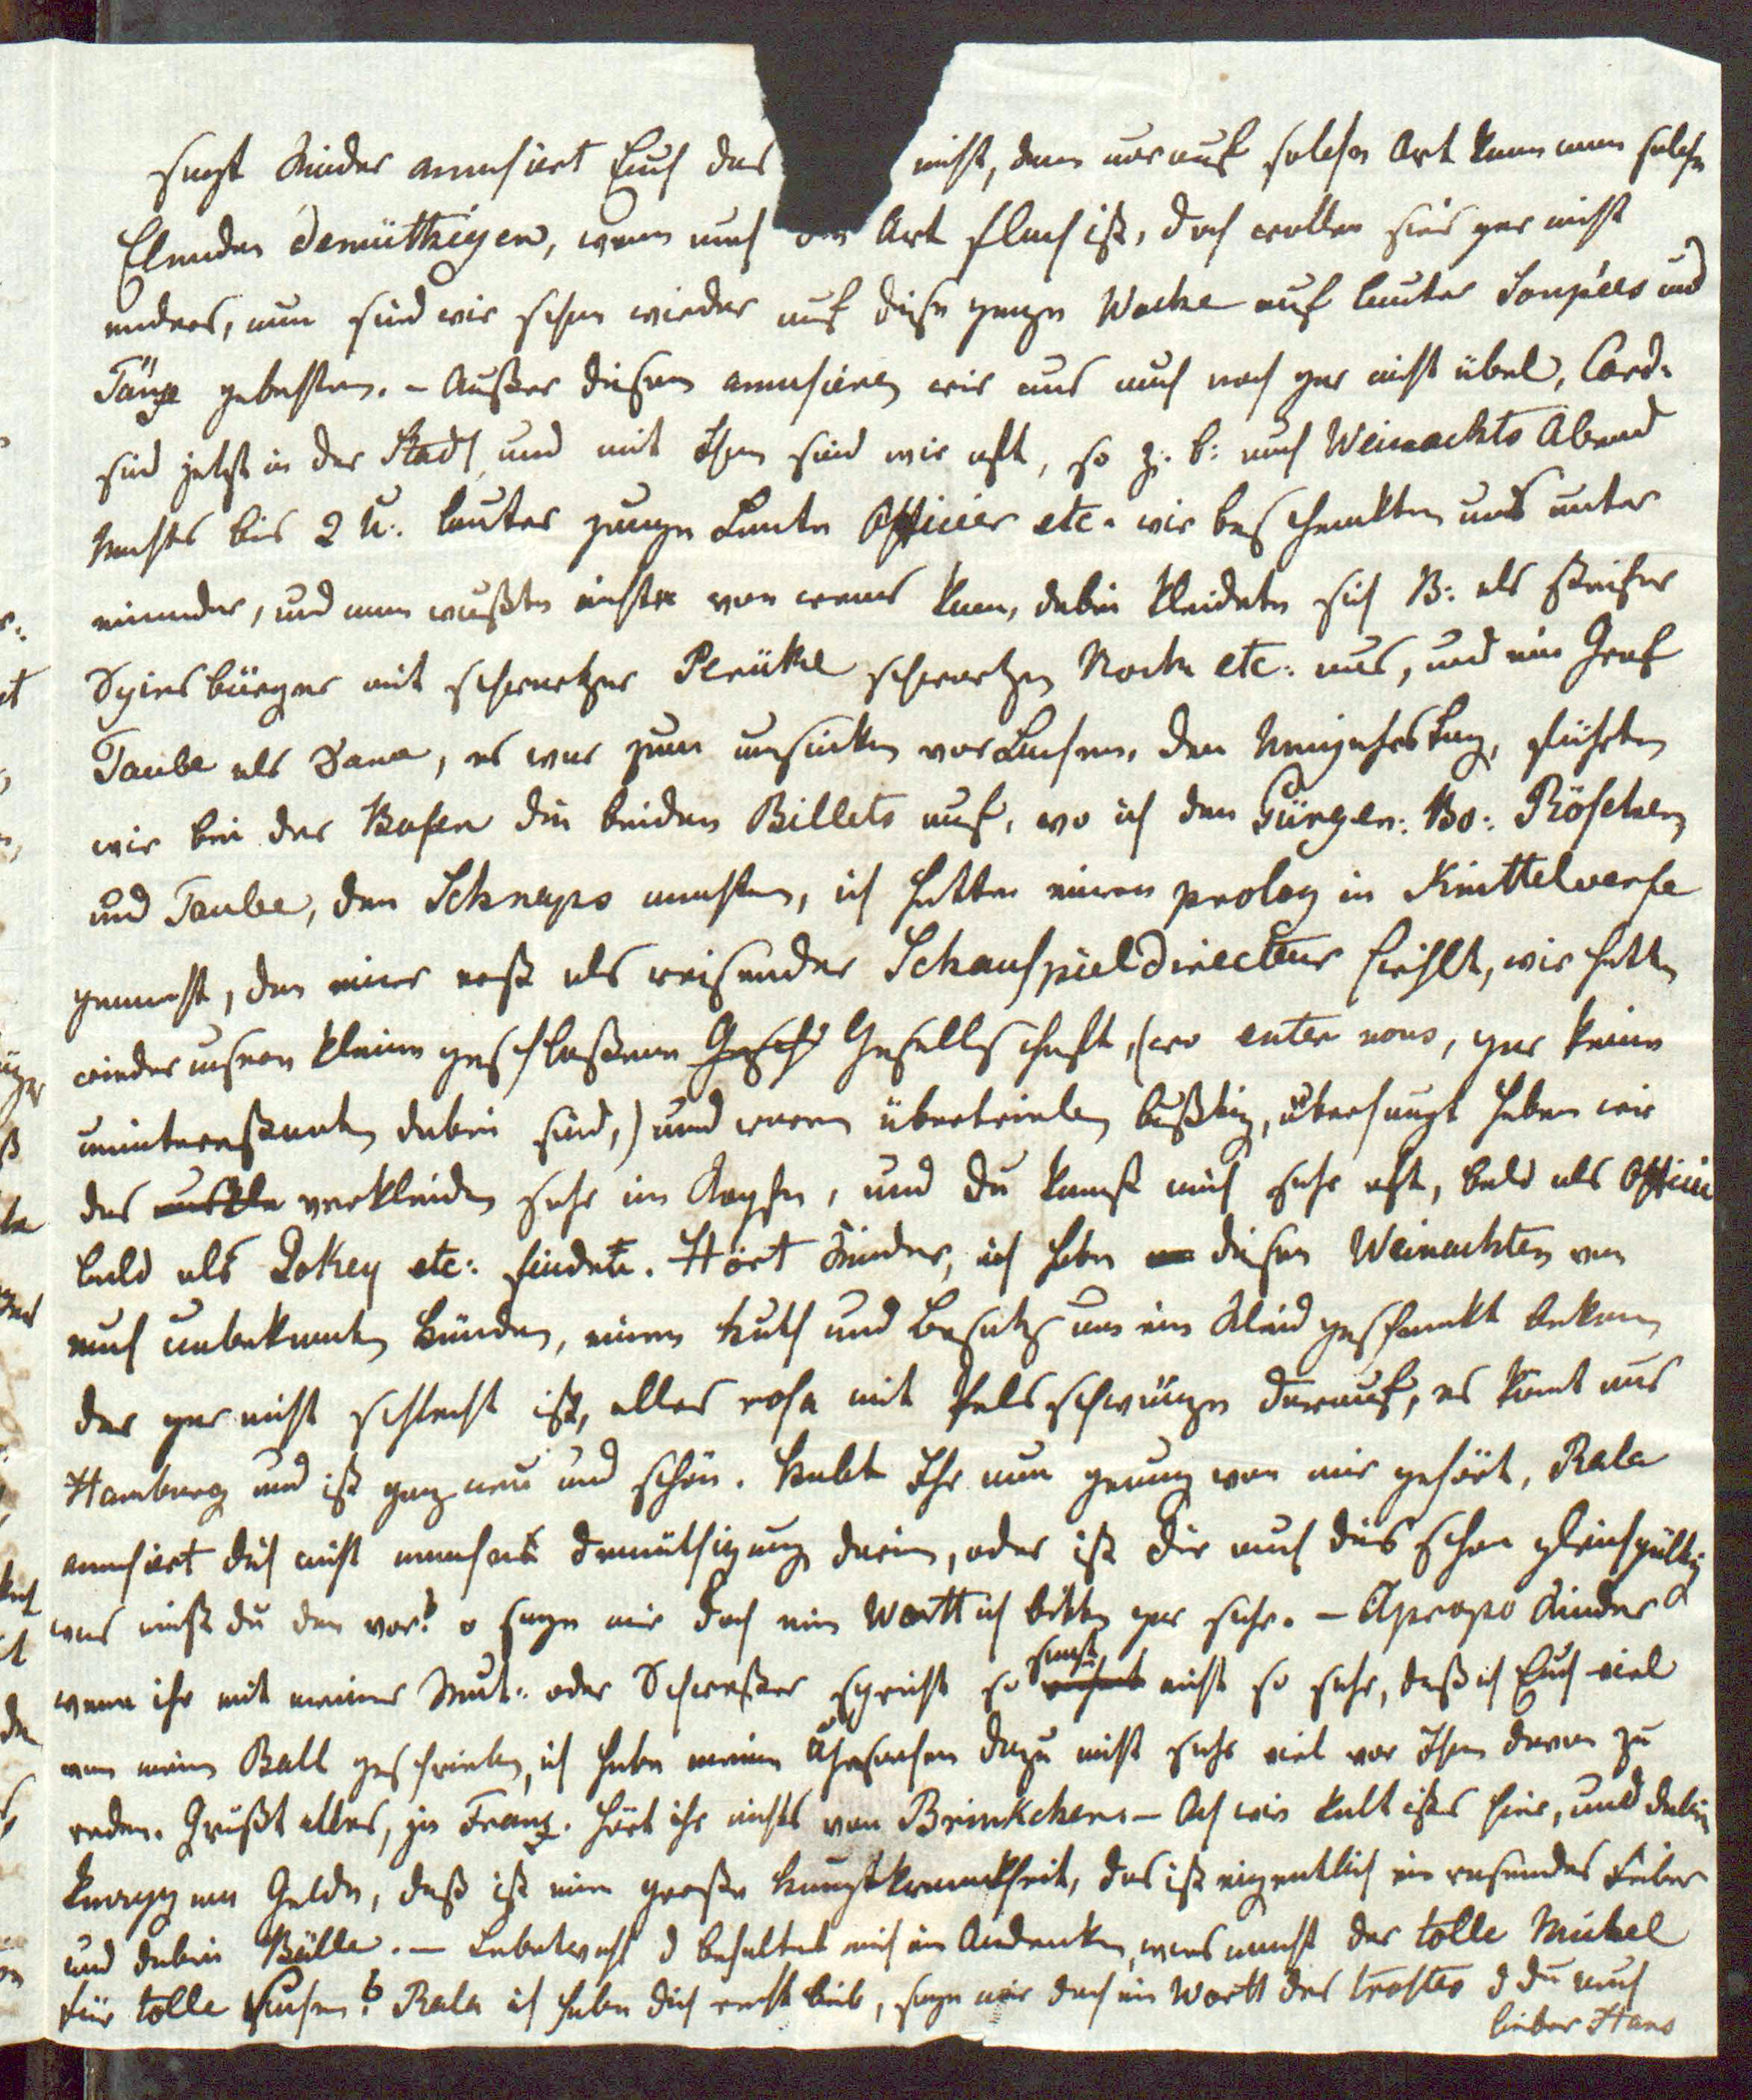 sagt Kinder amusirt Euch das nicht, denn nur auf solche Art kann man solche
Elenden demüthigen, wenn auch die Art flach ist, doch wollen sies gar nicht
anders, nun sind wir schon wieder auf diese ganze Woche auf lauter Soupées und
Tänze gebethen. – Außer diesem amusiren wir uns auch noch gar nicht übel, Card.
sind jetzt in der Stadt, und mit Ihnen sind wir oft, so z. b: auch Weinachts Abend
Nachts bis 2 U: lauter junge Leute Officier etc. wir beschenkten uns unter
einander, und man wußte nicht von wems kam, dabei kleidete sich B: als steifer
Spiesbürger mit schwartzer Perüke schwartzen Rock etc: aus, und ein Graf
Taube als Dame, es war zum umsinken vor Lachen, den Neujahrs tag, führten
wir bei der Bosen die beiden Billets auf, wo ich den Gürgen: Bo: Röschen
und Taube, den Schnaps machten, ich hatte einen prolog in Knittelverse
gemacht, den einer erst als reisender Schauspieldirecteur hielt, wir hatten
wieder unsren kleine geschloßene Gesellschaft, (wo entre nous, gar keine
uninteressanten dabei sind,) und waren übertrieben lustig, überhaupt haben wir
das verkleiden sehr im Kopfe, und du kanst mich sehr oft, bald als Officier
bald als Jokey etc: finden. Hört Kinder, ich habe diesen Weinachten von
auch unbekanten Händen, einen Huth und Besatz um ein Kleid geschenkt bekomen
der gar nicht schlecht ist, alles rosa mit Pelsschwänze darauf, es komt aus
Hamburg und ist ganz neu und schön. Habt Ihr nun genung von mir gehört, Rala
amusirt dich nicht manches demüthigung darin, oder ist dir auch dies schon gleichgültig
was hast du den vor? o sage mir doch ein Wortt ich bitte gar sehr. – Apropo Kinder
wenn ihr mit meiner Mut: oder Schwester spricht so sagt nicht so sehr, daß ich Euch viel
von mein Ball geschrieben, ich habe meine Uhrsachen dazu nicht sehr viel vor Ihnen davon zu
reden. Grüßt alles, ja Franz. hört ihr nichts von Brinkchen. – Ach wie kalt ists hier, und dabei
knapp am Gelde, daß ist eine große Hauptkrankheit, das ist eigentlich ein rasendes Fieber
und dabei Bälle. – Lebetwohl d behaltet mich im Andenken, was macht der tolle Michel
für tolle Sachen? Rala ich habe dich recht lieb, sage mir doch ein Wortt des trostes d du auch
lieber Hans